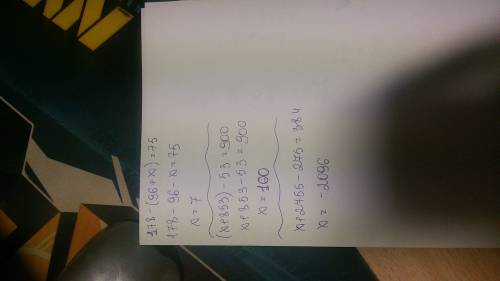 178-(96+x)=75
178-96-x=75
x=7
(x+853)-53=900
x+853-53=900
x=100
x+2755-275=384
x=-2096